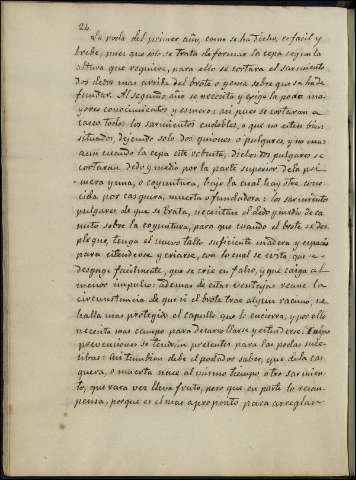 24.
La poda del primer año, como se ha dicho, es facil y
brebe, pues que solo se trata de formar la cepa segun la
altura que requiere, para ello se cortara el sarmiento
dos dedos mas arriba del brote o yema sobre que se ha de
fundar. Al segundo año se necesita y exige la poda ma-
yores conocimientos y esmero: asi pues se cortaran a
casco todos los sarmientos endebles, o que no esten bien
situados, dejando solo dos guiones o pulgares, y no mas
aun cuando la cepa este robusta, dichos dos pulgares se
cortaran dedo y medio por la parte superior de la pri-
mera yema, o coyuntura, bajo la cual hay otra cono-
cida por casquera, muerta o fundadora: los sarmientos
pulgares de que se trata, necesitan el dedo y medio de ca-
nuto sobre la coyuntura, para que cuando el brote se des-
plegue, tenga el nuevo tallo suficiente madera y espacio
para estenderse y criarse, con lo cual se evita, que se
desgage facilmente, que se crie en falso, y que caiga al
menos impulso: ademas de estas ventajas reune la
circunstancia de que si el brote trae algun racimo, se
halla mas protegido el capullo que lo encierra, y por ello
necesita mas campo para desarrollarse y estenderse.
prevenciones se tendrán presentes para las podas suce-
sibas: Asi tambien debe el podador saber, que de la cas-
quera, o muerta nace al mismo tiempo otro sarmien-
to, que rara vez lleva fruto, pero que en parte lo recom-
pensa, porque es el mas aproposito para arreglar